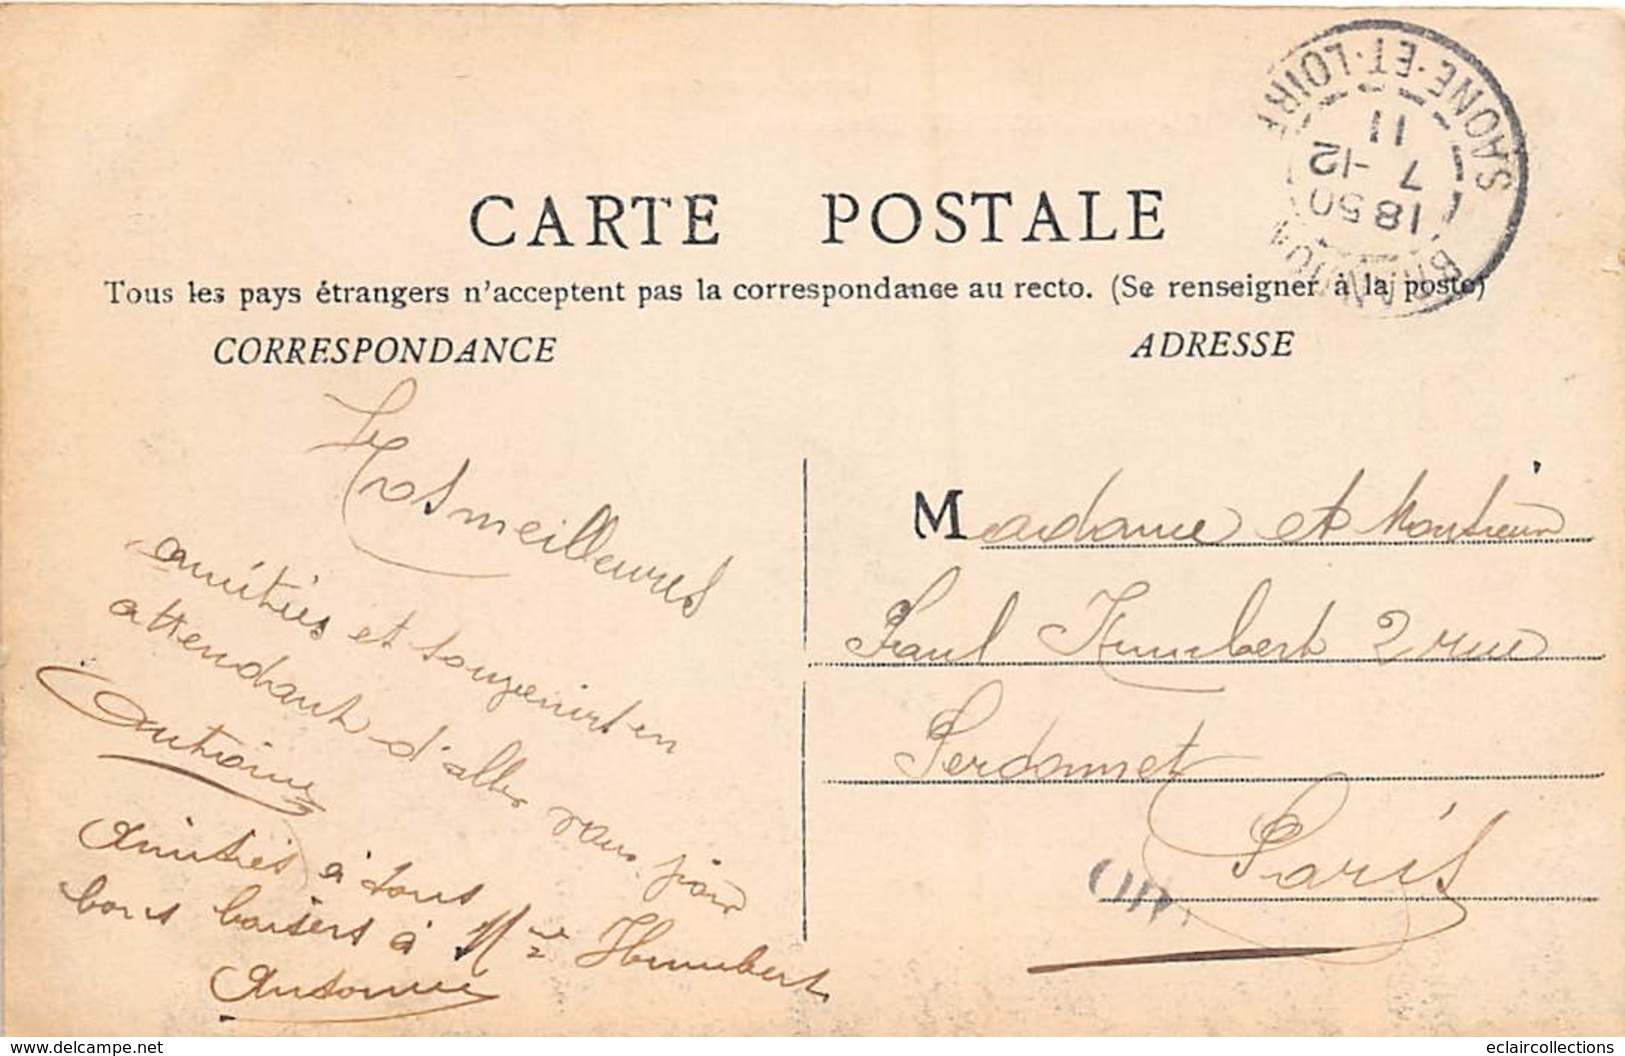 CARTE POSTALE
Tous les pays étrangers n'acceptent pas la correspondance au recto. (Se renseigner à la poste)
CORRESPONDANCE
ADRESSE
SAONE-ET-LOIRE
18 50
7 -12
11
Nos meilleures
amitiés et souvenirs en
attendant d'aller vous
Antoine
Amitiés à tous
bons baisers à Mme Humbert
Antonine
Madame et Monsieur
Paul Humbert 2 rue
Perdonnet
Paris
OR
www.delcampe.net
eclaircollections